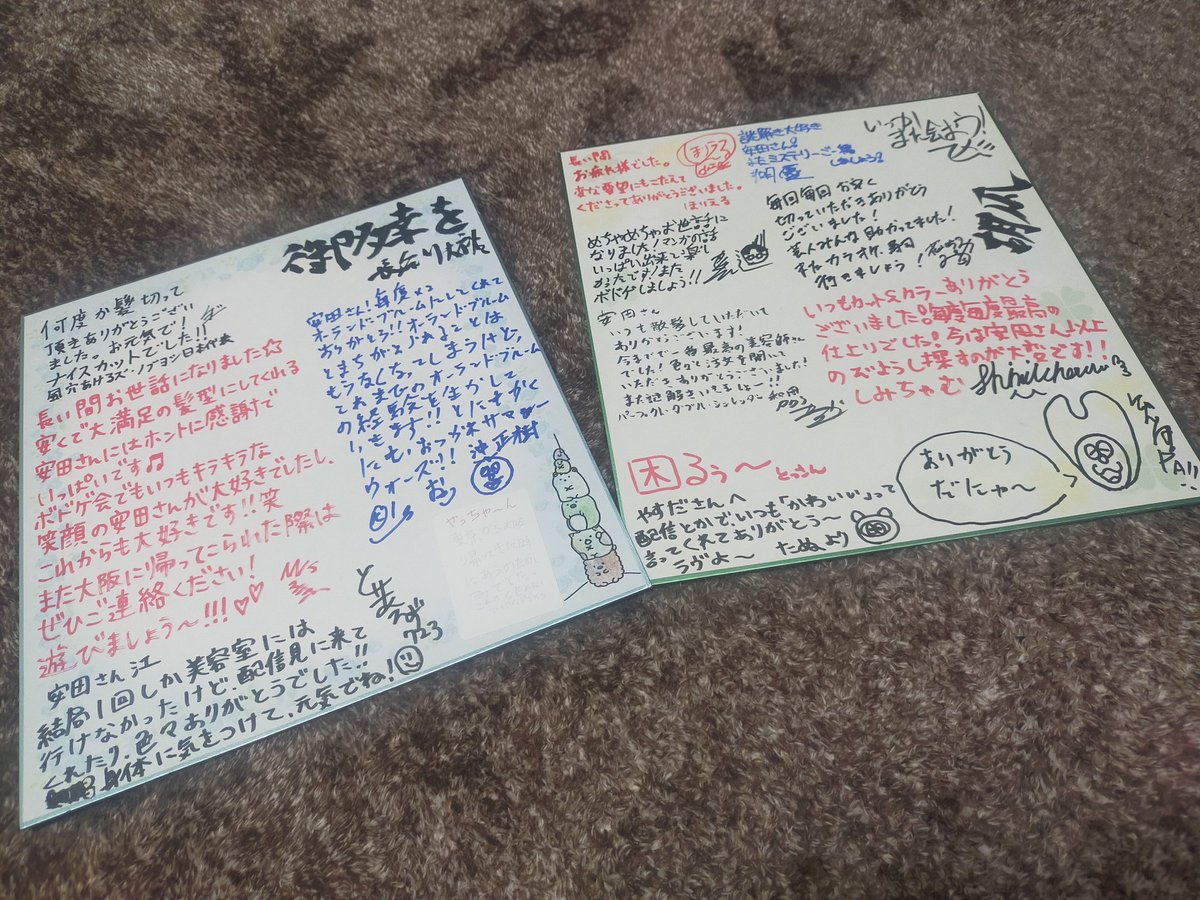 御多幸を
何度か髪切って
頂きありがとうござい
ました。お元気で!
ナイスカットでした!!
長い間お世話になりました☆
安くて大満足の髪型にしてくれる
安田さんにはホントに感謝で
いっぱいです♫
ボドゲ会でもいつもキラキラな
笑顔の安田さんが大好きでしたし、
これからも大好きです!!笑
また大阪に帰ってこられた際は
ぜひご連絡ください!
遊びましょう〜!!!♡♡
安田さん!毎度っっ
オーランドブルームにしてくれて
ありがとう!!オーランドブルーム
とまちがえられることは
もうなくなってしまうけど、
これまでのオーランドブルーム
の経験を生かして
いきます!!とにもかく
にも、おっかれサマー
ウォーズ!!
やっちゃ〜ん
723
安田さん江
結局1回しか美容室には
行けなかったけど、配信見に来て
くれたり、色々ありがとうでした!!
身体に気をつけて、元気でね!
長い間
お疲れ様でした。
変な要望にもこたえて
くださってありがとうございました。
ほりえる
謎解き大好き
安田さん!
いつかまた会おう!
めちゃめちゃお世話に
なりました!マンガの話
いっぱい出来て楽し
かったです!また
ボドゲしましょう!!
毎回毎回お安く
切っていただきありがとう
ございました!
芸人みんな助かってました!
またカラオケ、駒
行きましょう!
安田さん
いつも散髪していただいて
ありがとうございます!
今までで一番最高の美容師さん
でした!色々と注文を聞いて
いただきありがとうございました!
また謎解きいきましょー!!
いつもカット&カラーありがとう
ございました。毎度毎度最高の
仕上りでした!今は安田さん以上
のびようし探すのが大変です!!
しみちゃむ
困るぅ〜
やすださんへ
配信とかで、いつも「かわいい」って
言ってくれてありがとう〜
ラヴよ〜 たぬより
ありがとう
だにゃ〜